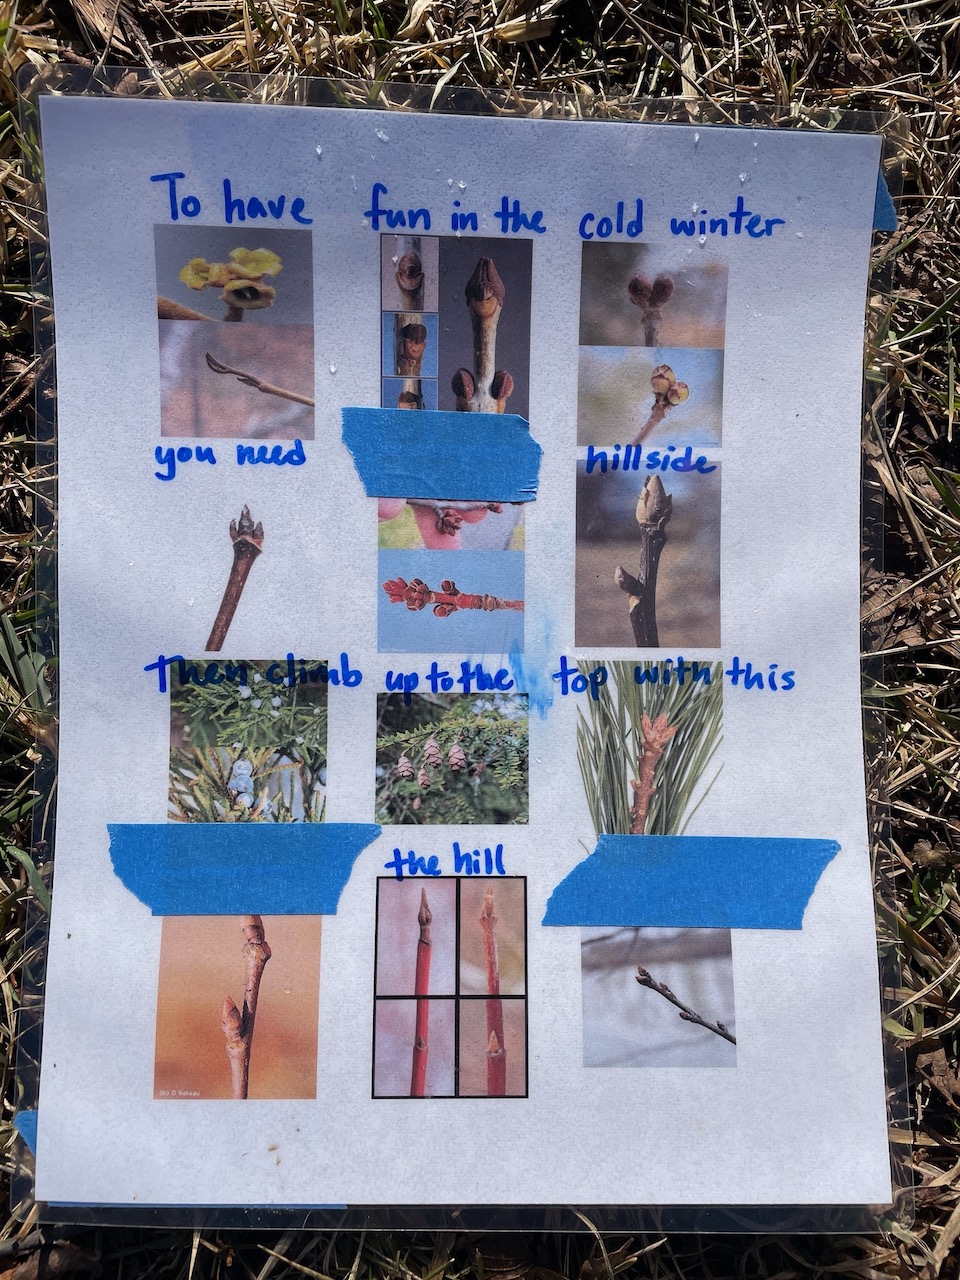 To have fun in the cold winter
you need hillside
Then climb up to the top with this
the hill